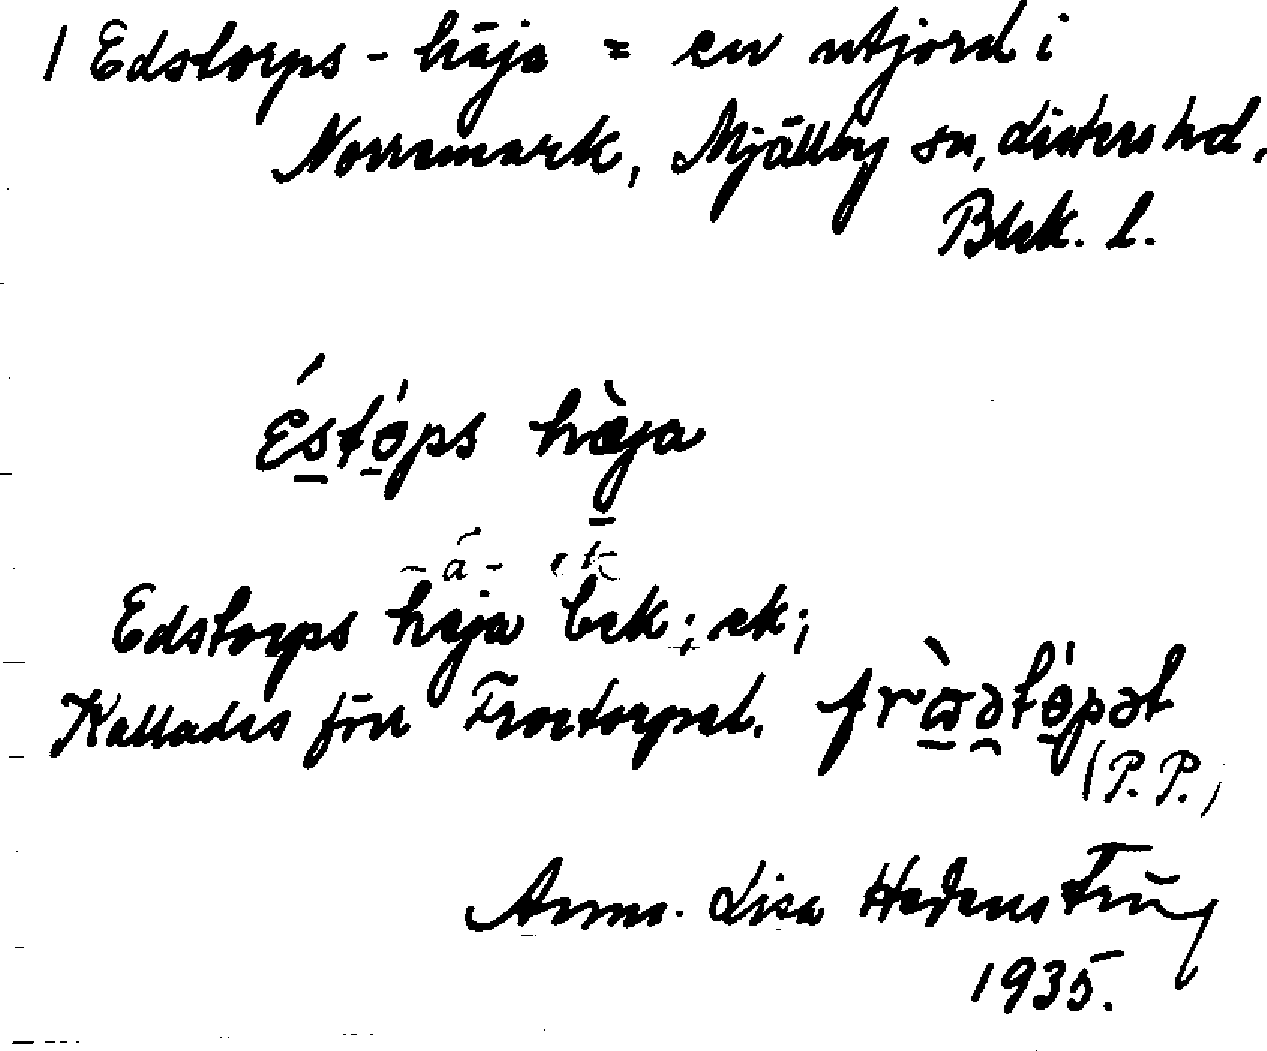 1 Edstorps-häja = en utjord i
Norremark, Mjällby sn, Listers hd,
Blek. l.
Éstó̱ps hæ̀ja
- á -
Edstorps häja bek; ek;
Kallades förr Frostorpet. fròəstópət
(P.P.)
Anna-Lisa Hedenstrüg
1935.